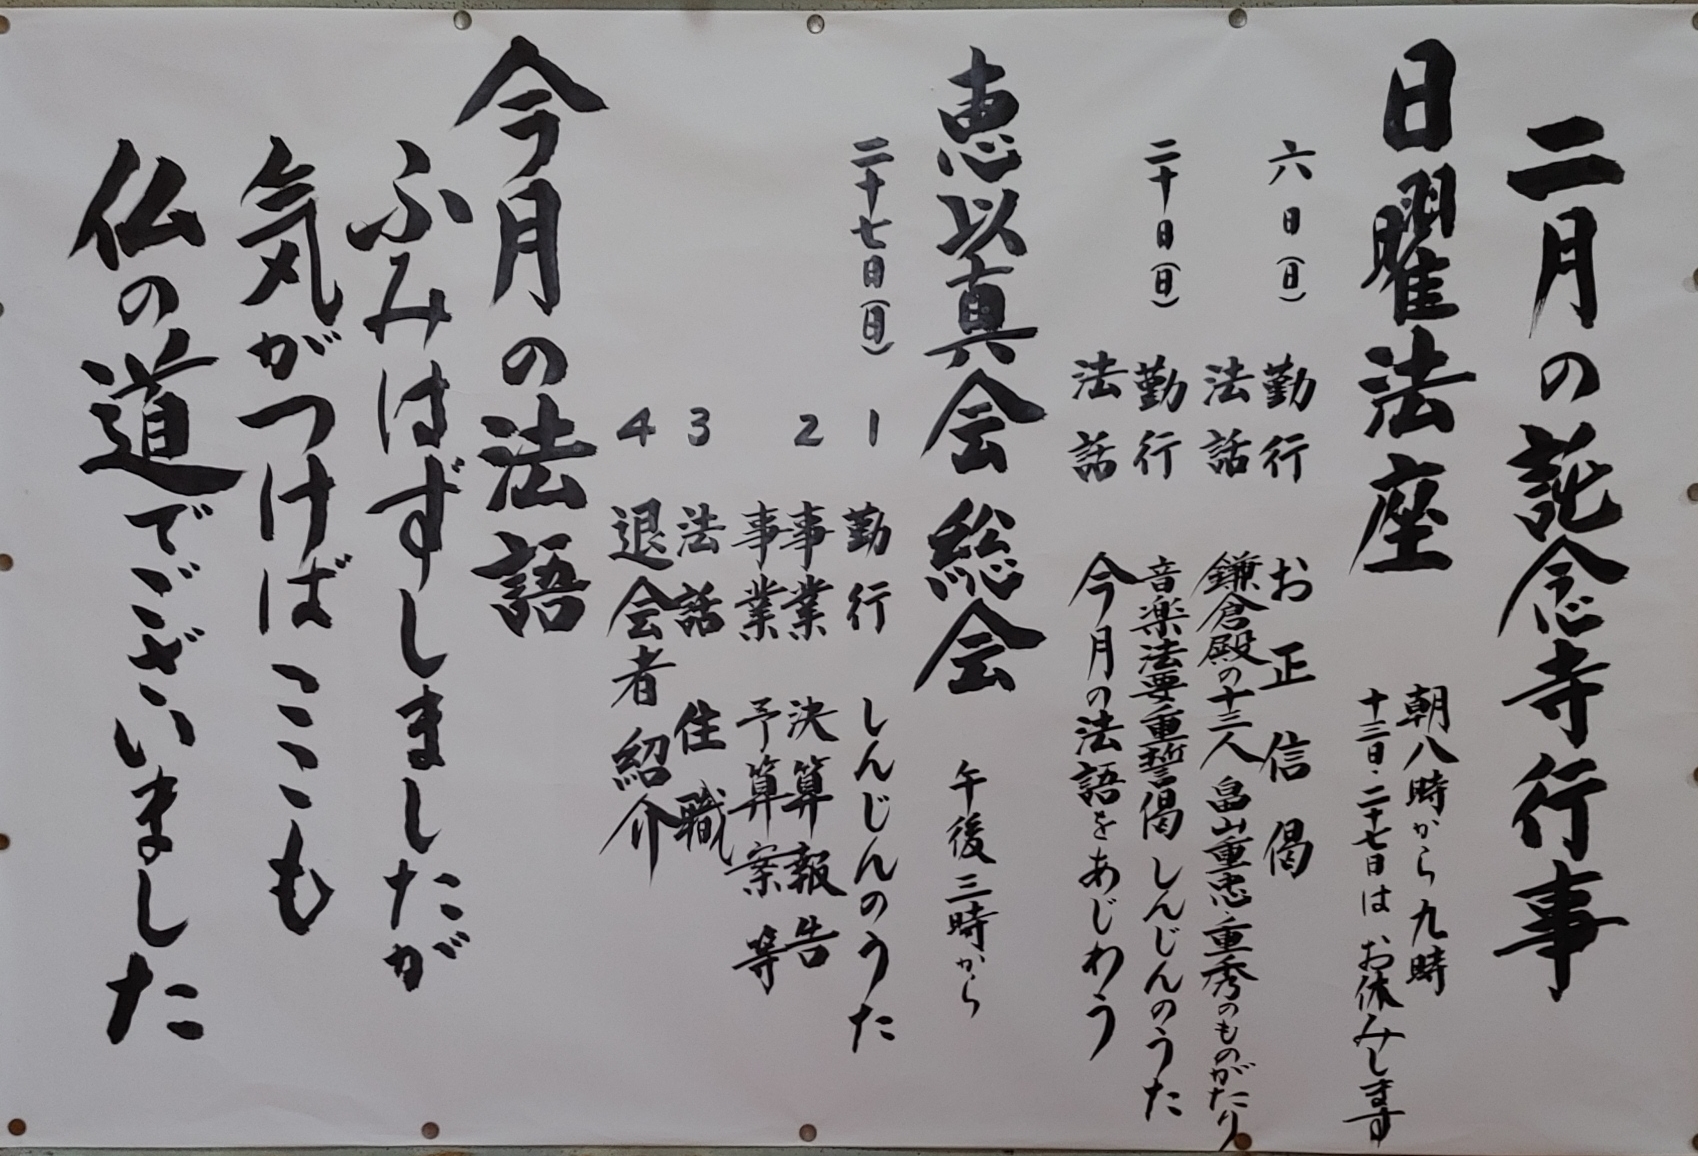 二月の託念寺行事
日曜法座
朝八時から九時
十三日・二十七日は お休みします
六日(日) 勤行 お正信偈
法話 鎌倉殿の十三人 畠山重忠・重秀のものがたり
二十日(日) 勤行 音楽法要重誓偈 しんじんのうた
法話 今月の法語をあじわう
恵以真会 総会 午後三時から
二十七日(日) 1 勤行 しんじんのうた
2 事業 決算報告
事業 予算案等
3 法話 住職
4 退会者紹介
今月の法語
ふみはずしましたが
気がつけば ここも
仏の道でございました